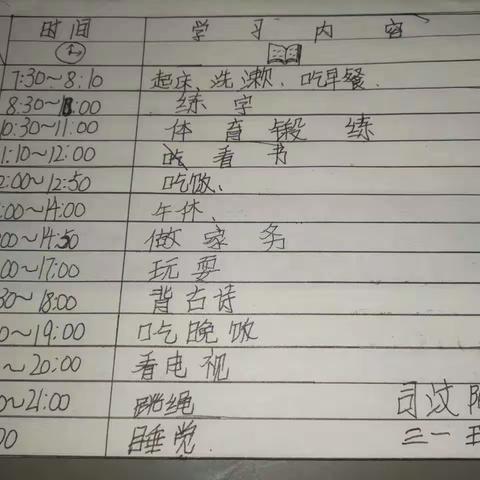 时间 学习内容
7:30~8:10 起床、洗漱、吃早餐.
8:30~ :00 练字
10:30~11:00 体育锻练
1:10~12:00 看书
2:00~12:50 吃饭、
:00~14:00 午休、
00~14:50 做家务
00~17:00 玩耍
30~18:00 背古诗
0~19:00 吃晚饭
~20:00 看电视
0~21:00 跳绳 司汶
00 睡觉. 三一五